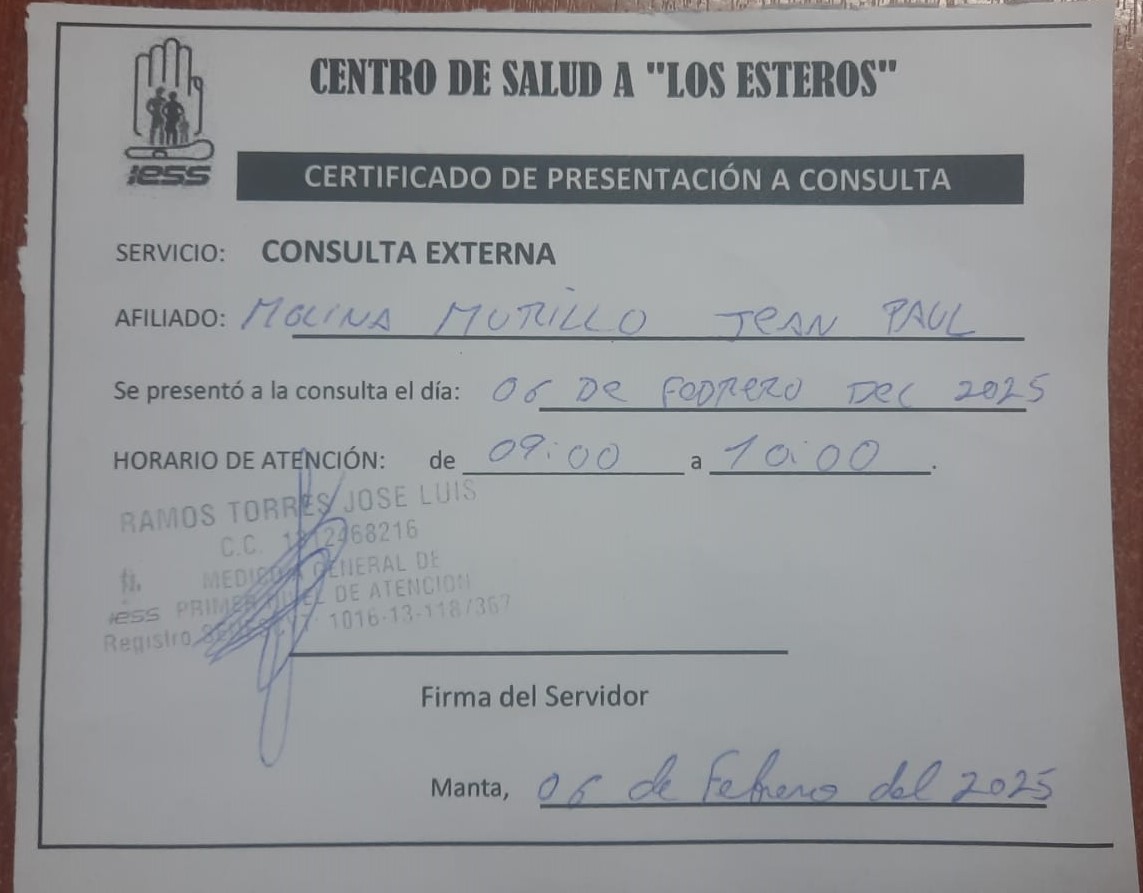 CENTRO DE SALUD A "LOS ESTEROS"
iess
CERTIFICADO DE PRESENTACIÓN A CONSULTA
SERVICIO: CONSULTA EXTERNA
AFILIADO: MOLINA MURILLO JEAN PAUL
Se presentó a la consulta el día: 06 DE FEBRERO DEL 2025
HORARIO DE ATENCIÓN: de 09:00 a 10:00.
RAMOS TORRES JOSE LUIS
C.C. 1312468216
MEDICINA GENERAL DE
iess PRIMER NIVEL DE ATENCION
Registro SENESCYT 1016-13-1187367
Firma del Servidor
Manta, 06 de Febrero del 2025